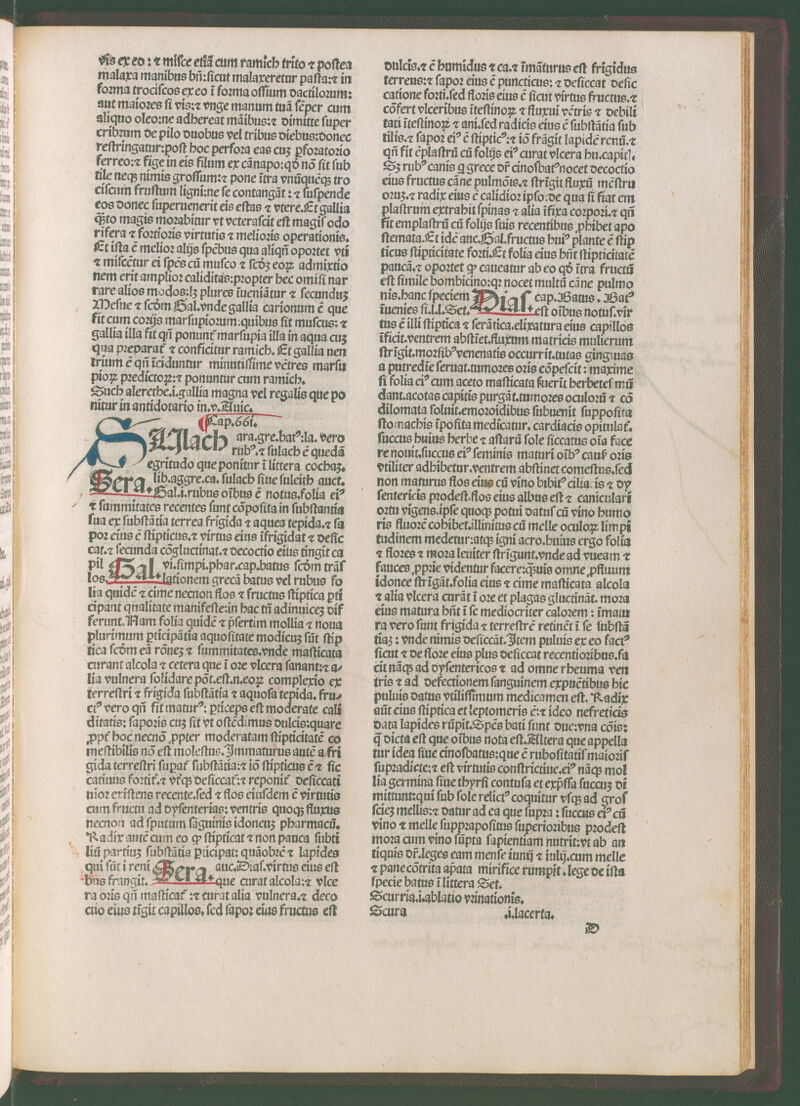 vis ex eo : ⁊ misce etiā cum ramich trito ⁊ postea
malaxa manibus bn̄: sicut malaxeretur pasta: ⁊ in
forma trociscos ex eo ī forma ossium dactilorum:
aut maiores si vis: ⁊ vnge manum tuā sēper cum
aliquo oleo: ne adhereat māibus: ⁊ dimitte super
cribrum de pilo duobus vel tribus diebus: donec
restringatur: post hoc perfora eas cuꝫ ꝑforatorio
ferreo: ⁊ fige in eis filum ex cānapo: qđ nō sit sub
tile neqꝫ nimis grossum: ⁊ pone ītra vnūquēqꝫ tro
ciscum frustum ligni: ne se contangāt : ⁊ suspende
eos donec superuenerit eis estas ⁊ vtere. Et gallia
q̄sto magis morabitur vt veterascit est magis odo
rifera ⁊ fortioris virtutis ⁊ melioris operationis.
Et ista ē melior alijs spēbus qua aliqn̄ oportet vti
⁊ miscētur ei spēs cū musco ⁊ scd̄ꝫ eoꝝ admixtio
nem erit amplior caliditas: propter hec omisi nar
rare alios modos: lꝫ plures īueniātur ⁊ secunduꝫ
Mesue ⁊ scd̄m Gal. vnde gallia carionum ē que
fit cum corijs marsupiorum: quibus fit muscus: ⁊
gallia illa fit qn̄ ponunt᷑ marsupia illa in aqua cuꝫ
qua preparat᷑ ⁊ conficitur ramich. Et gallia uen
trium ē qn̄ īciduntur minutissime vētres marsu
pioꝝ predictoꝝ: ⁊ ponuntur cum ramich.
Such alerethe .i. gallia magna vel regalis que po
nitur in antidotario in .v. Auic.
¶Cap. 661.
SUlach ara. gre. bat⁹: la. vero
rub⁹. ⁊ sulach ē quedā
egritudo que ponitur ī littera cochaꝫ.
Sera. lib. aggre. ca. sulach siue suleith auct.
Gal. i. rubus oībus ē notus. folia ei⁹
⁊ summitates recentes sunt cōposita in substantia
sua ex substātia terrea frigida ⁊ aquea tepida. ⁊ sa
por eius ē stipticus. ⁊ virtus eius īfrigidat ⁊ desic
cat. ⁊ secunda cōglutinat. ⁊ decoctio eius tingit ca
pil Gal. vi. simpi. phar. cap. batus scd̄m trās
los. lationem grecā batus vel rubus fo
lia quidē ⁊ cime necnon flos ⁊ fructus stiptica pti
cipant qualitate manifeste: in hac tn̄ adinuiceꝫ dif
ferunt. Nam folia quidē ⁊ p̄sertim mollia ⁊ noua
plurimum pticipātia aquositate modicuꝫ sūt stip
tica scd̄m eā rōneꝫ ⁊ summitates. vnde masticata
curant alcola ⁊ cetera que ī ore vlcera sanant: ⁊ a⸗
lia vulnera solidare pōt. est. n. eoꝝ complexio ex
terrestri ⁊ frigida substātia ⁊ aquosa tepida. fru⸗
ct⁹ vero qn̄ fit matur⁹: pticeps est moderate cali
ditatis: saporis cuꝫ sit vt ostēdimus dulcis: quare
ꝓpt᷑ hoc necnō ꝓpter moderatam stipticitatē co
mestibilis nō est molestus. Immaturus autē a fri
gida terrestri supat᷑ substātia: ⁊ iō stipticus ē ⁊ sic
catiuus fortit᷑. ⁊ vt᷑qꝫ desiccat᷑: ⁊ reponit᷑ desiccati
uior existens recente. sed ⁊ flos eiusdem ē virtutis
cum fructu ad dysenterias: ventris quoqꝫ fluxus
necnon ad sputum sāguinis idoneuꝫ pharmacū.
Radix autē cum eo ꝙ stipticat ⁊ non pauca subti
liū partiuꝫ substātia pticipat: quāobrē ⁊ lapides
qui sūt ī reni Sera. auc. Dias. virtus eius est
bus frangit. que curat alcola: ⁊ vlce
ra oris qn̄ masticat᷑ : ⁊ curat alia vulnera. ⁊ deco
ctio eius tīgit capillos. sed sapor eius fructus est
dulcis. ⁊ ē humidus ⁊ ca. ⁊ īmāturus est frigidus
terreus: ⁊ sapor eius ē puncticus: ⁊ desiccat desic
catione forti. sed floris eius ē sicut virtus fructus. ⁊
cōfert vlceribus ītestinoꝝ ⁊ fluxui vētris ⁊ debili
tati ītestinoꝝ ⁊ ani. sed radicis eius ē substātia sub
tilis. ⁊ sapor ei⁹ ē stiptic⁹: ⁊ iō frāgit lapidē renū. ⁊
qn̄ fit ēplastrū cū folijs ei⁹ curat vlcera hu. capit᷑.
Sꝫ rub⁹ canis q grece dr̄ cinosbat⁹ nocet decoctio
eius fructus cāne pulmōis. ⁊ strīgit fluxū mēstru
oruꝫ. ⁊ radix eius ē calidior ipso: de qua si fiat em
plastrum extrahit spinas ⁊ alia īfixa corpori. ⁊ qn̄
fit emplastrū cū folijs suis recentibus ꝓhibet apo
stemata. Et idē auc. Gal. fructus hui⁹ plante ē stip
ticus stipticitate forti. Et folia eius hn̄t stipticitatē
paucā. ⁊ oportet ꝙ caueatur ab eo qđ ītra fructū
est simile bombicino: qꝛ nocet multū cāne pulmo
nis. hanc speciem Dias. cap. Batus. Bat⁹
īuenies si. l. l. Set. est oībus notus. vir
tus ē illi stiptica ⁊ serātica. elixatura eius capillos
īficit. ventrem abstīet. fluxum matricis mulierum
strīgit. morsib⁹ venenatis occurrit. tutas gingiuas
a putredīe seruat. tumores oris cōpescit : maxime
si folia ei⁹ cum aceto masticata fuerīt herbetes mū
dant. acotas capitis purgāt. tumores oculorū ⁊ cō
dilomata soluit. emoroidibus subuenit supposita
stomachis īposita medicatur. cardiacis opitulat᷑.
succus huius herbe ⁊ astarū sole siccatus oīa face
re nouit. succus ei⁹ seminis maturi oīb⁹ caus᷑ oris
vtiliter adhibetur. ventrem abstinet comestus. sed
non maturus flos eius cū vino bibit⁹ cilia. is ⁊ dy
sentericis prodest. flos eius albus est ⁊ caniculari
ortu vigens. ipse quoqꝫ potui datus cū vino humo
ris fluorē cohibet. illinitus cū melle oculoꝝ limpi
tudinem medetur: atqꝫ igni acro. huius ergo folia
⁊ flores ⁊ mora leuiter strīgunt. vnde ad vueam ⁊
fauces ꝓprie videntur facere: q̄uis omne ꝓfluum
idonee strīgāt. folia eius ⁊ cime masticata alcola
⁊ alia vlcera curāt ī ore et plagas glutināt. mora
eius matura hn̄t ī se mediocriter calorem : īmatu
ra vero sunt frigida ⁊ terrestrē retinēt ī se substā
tiaꝫ : vnde nimis desiccāt. Item puluis ex eo fact⁹
sicut ⁊ de flore eius plus desiccat recentioribus. fa
cit nāqꝫ ad dysentericos ⁊ ad omne rheuma ven
tris ⁊ ad defectionem sanguinem expuētibus hic
puluis datus vtilissimum medicamen est. Radix
aūt eius stiptica et leptomeris ē: ⁊ ideo nefreticis
data lapides rūpit. Spēs bati sunt due: vna cōis:
q̄ dicta est que oībus nota est. Altera que appella
tur idea siue cinosbatus: que ē rubositatis maioris
supradicte: ⁊ est virtutis constrictiue. ei⁹ nāqꝫ mol
lia germina siue thyrsi contusa et exp̄ssa succuꝫ di
mittunt: qui sub sole relict⁹ coquitur vsqꝫ ad gros
scieꝫ mellis: ⁊ datur ad ea que supra : succus ei⁹ cū
vino ⁊ melle suppraositus superioribus prodest
mora cum vino sūpta sapientiam nutrit: vt ab an
tiquis dr̄. leges eam mense iunij ⁊ iulij. cum melle
⁊ pane cōtrita apata mirifice rumpit. lege de ista
specie batus ī littera Set.
Scurria. i. ablatio vrinationis.
Scura .i. lacerta.
D